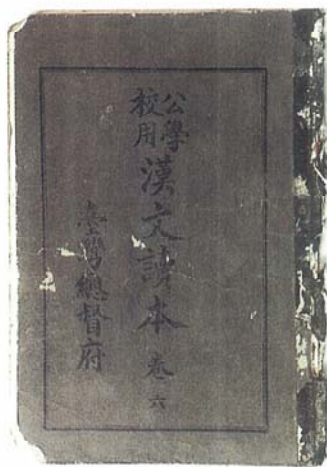 公學校用漢文讀本 卷六
臺灣總督府